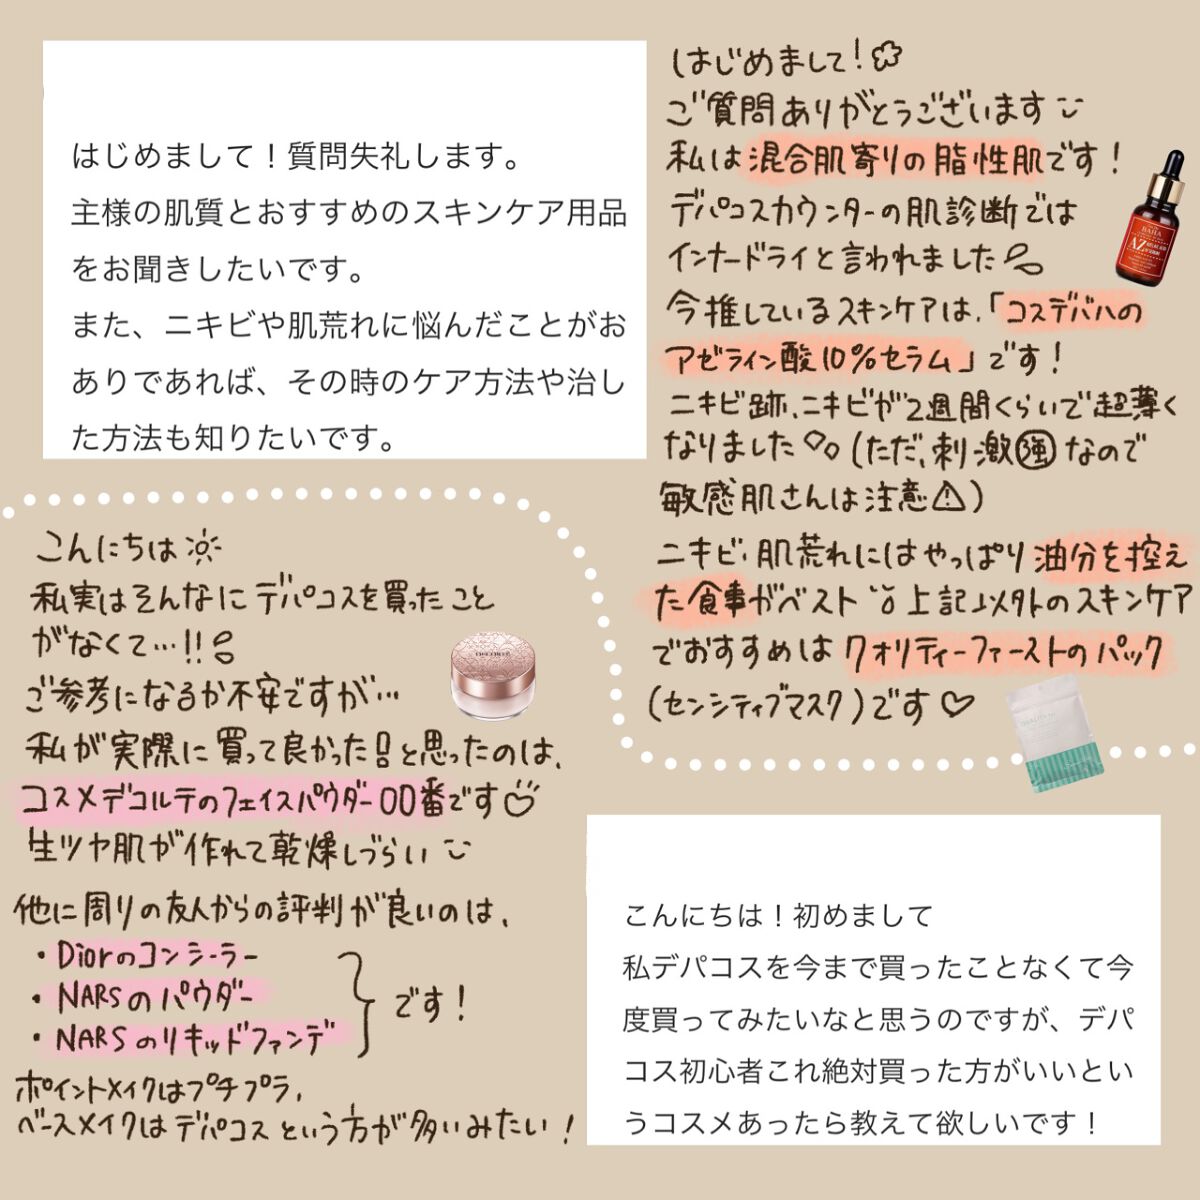 はじめまして！質問失礼します。
主様の肌質とおすすめのスキンケア用品
をお聞きしたいです。
また、ニキビや肌荒れに悩んだことがお
ありであれば、その時のケア方法や治し
た方法も知りたいです。
はじめまして！
ご質問ありがとうございます
私は混合肌寄りの脂性肌です！
デパコスカウンターの肌診断では
インナードライと言われました
今推しているスキンケアは、「コスデバハの
アゼライン酸10%セラム」です！
ニキビ跡、ニキビが2週間くらいで超薄く
なりました（ただ、刺激強なので
敏感肌さんは注意⚠）
ニキビ・肌荒れにはやっぱり油分を控え
た食事がベスト 上記以外のスキンケア
でおすすめはクオリティーファーストのパック
（センシティブマスク）です♡
BAHA
AZ
こんにちは！初めまして
私デパコスを今まで買ったことなくて今
度買ってみたいなと思うのですが、デパ
コス初心者これ絶対買った方がいいとい
うコスメあったら教えて欲しいです！
こんにちは
私実はそんなにデパコスを買ったこと
がなくて…!!
ご参考になるか不安ですが…
私が実際に買って良かった！と思ったのは、
コスメデコルテのフェイスパウダー00番です
生ツヤ肌が作れて乾燥しづらい
他に周りの友人からの評判が良いのは、
・Diorのコンシーラー
・NARSのパウダー
・NARSのリキッドファンデ
です！
ポイントメイクはプチプラ、
ベースメイクはデパコスという方が多いみたい！